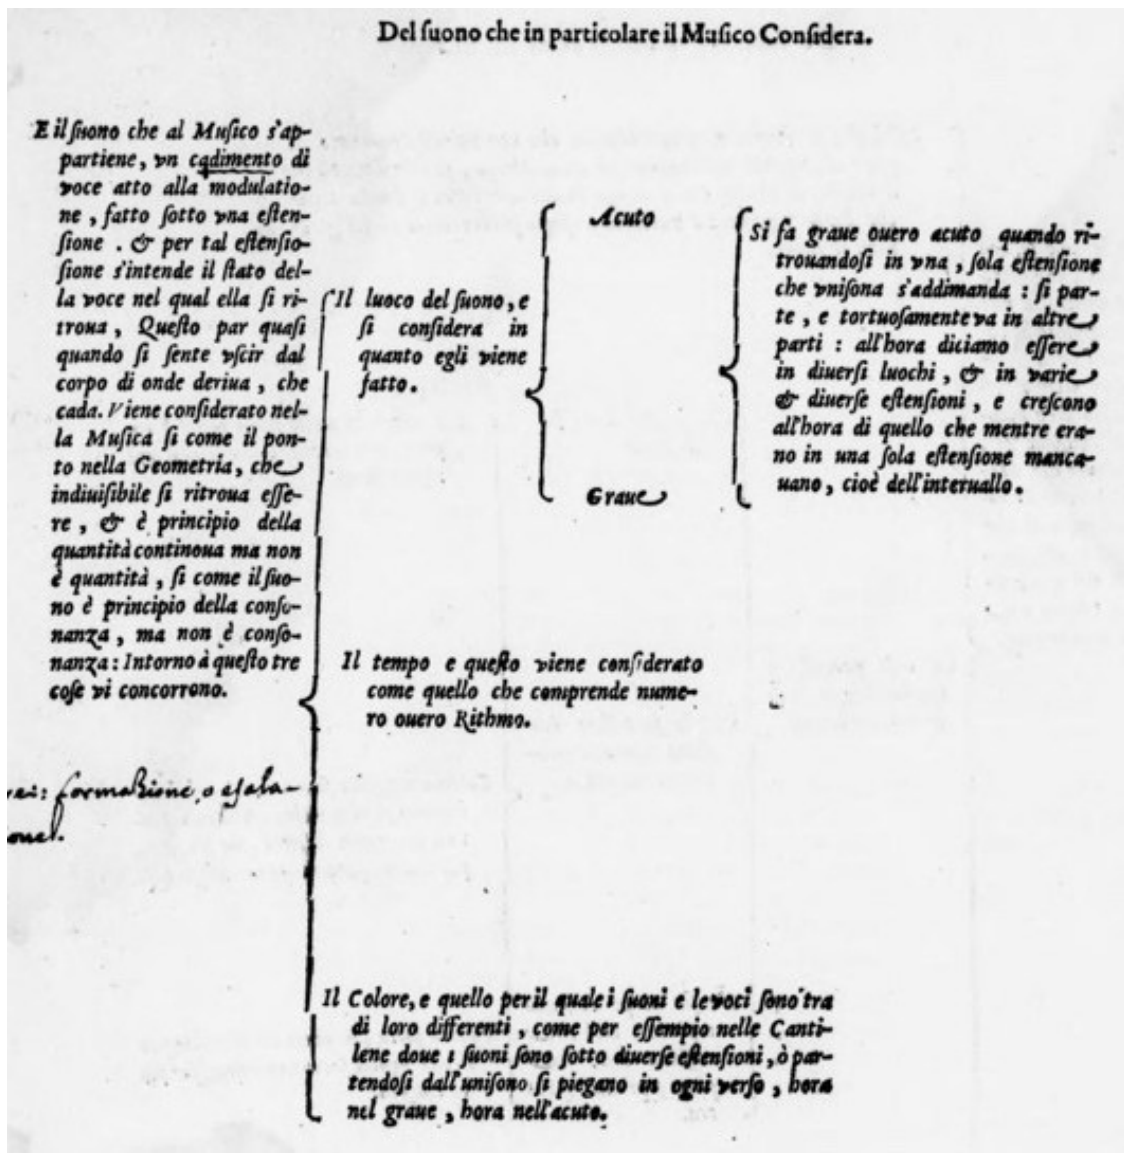 Del ſuono che in particolare il Muſico Conſidera.
E il ſuono che al Muſico s'ap-
partiene, vn cadimento di
voce atto alla modulatio-
ne, fatto ſotto vna eſten-
ſione. & per tal eſtenſio-
ſione s'intende il ſtato del-
la voce nel qual ella ſi ri-
troua, Queſto par quaſi
quando ſi ſente vſcir dal
corpo di onde deriua, che
cada. Viene conſiderato nel-
la Muſica ſi come il pon-
to nella Geometria, che
indiuiſibile ſi ritroua eſſe-
re, & è principio della
quantità continoua ma non
è quantità, ſi come il ſuo-
no è principio della conſo-
nanza, ma non è conſo-
nanza: Intorno à queſto tre
coſe vi concorrono.
formatione, o eſala-
Il luoco del ſuono, e
ſi conſidera in
quanto egli viene
fatto.
Acuto
Graue
Si fa graue ouero acuto quando ri-
trouandoſi in vna, ſola eſtenſione
che vniſona s'addimanda: ſi par-
te, e tortuoſamente va in altre
parti: all'hora diciamo eſſere
in diuerſi luochi, & in varie
& diuerſe eſtenſioni, e creſcono
all'hora di quello che mentre era-
no in una ſola eſtenſione manca-
uano, cioè dell'interuallo.
Il tempo e queſto viene conſiderato
come quello che comprende nume-
ro ouero Rithmo.
Il Colore, e quello per il quale i ſuoni e le voci ſono tra
di loro differenti, come per eſſempio nelle Canti-
lene doue i ſuoni ſono ſotto diuerſe eſtenſioni, ò par-
tendoſi dall'uniſono ſi piegano in ogni verſo, hora
nel graue, hora nell'acuto.